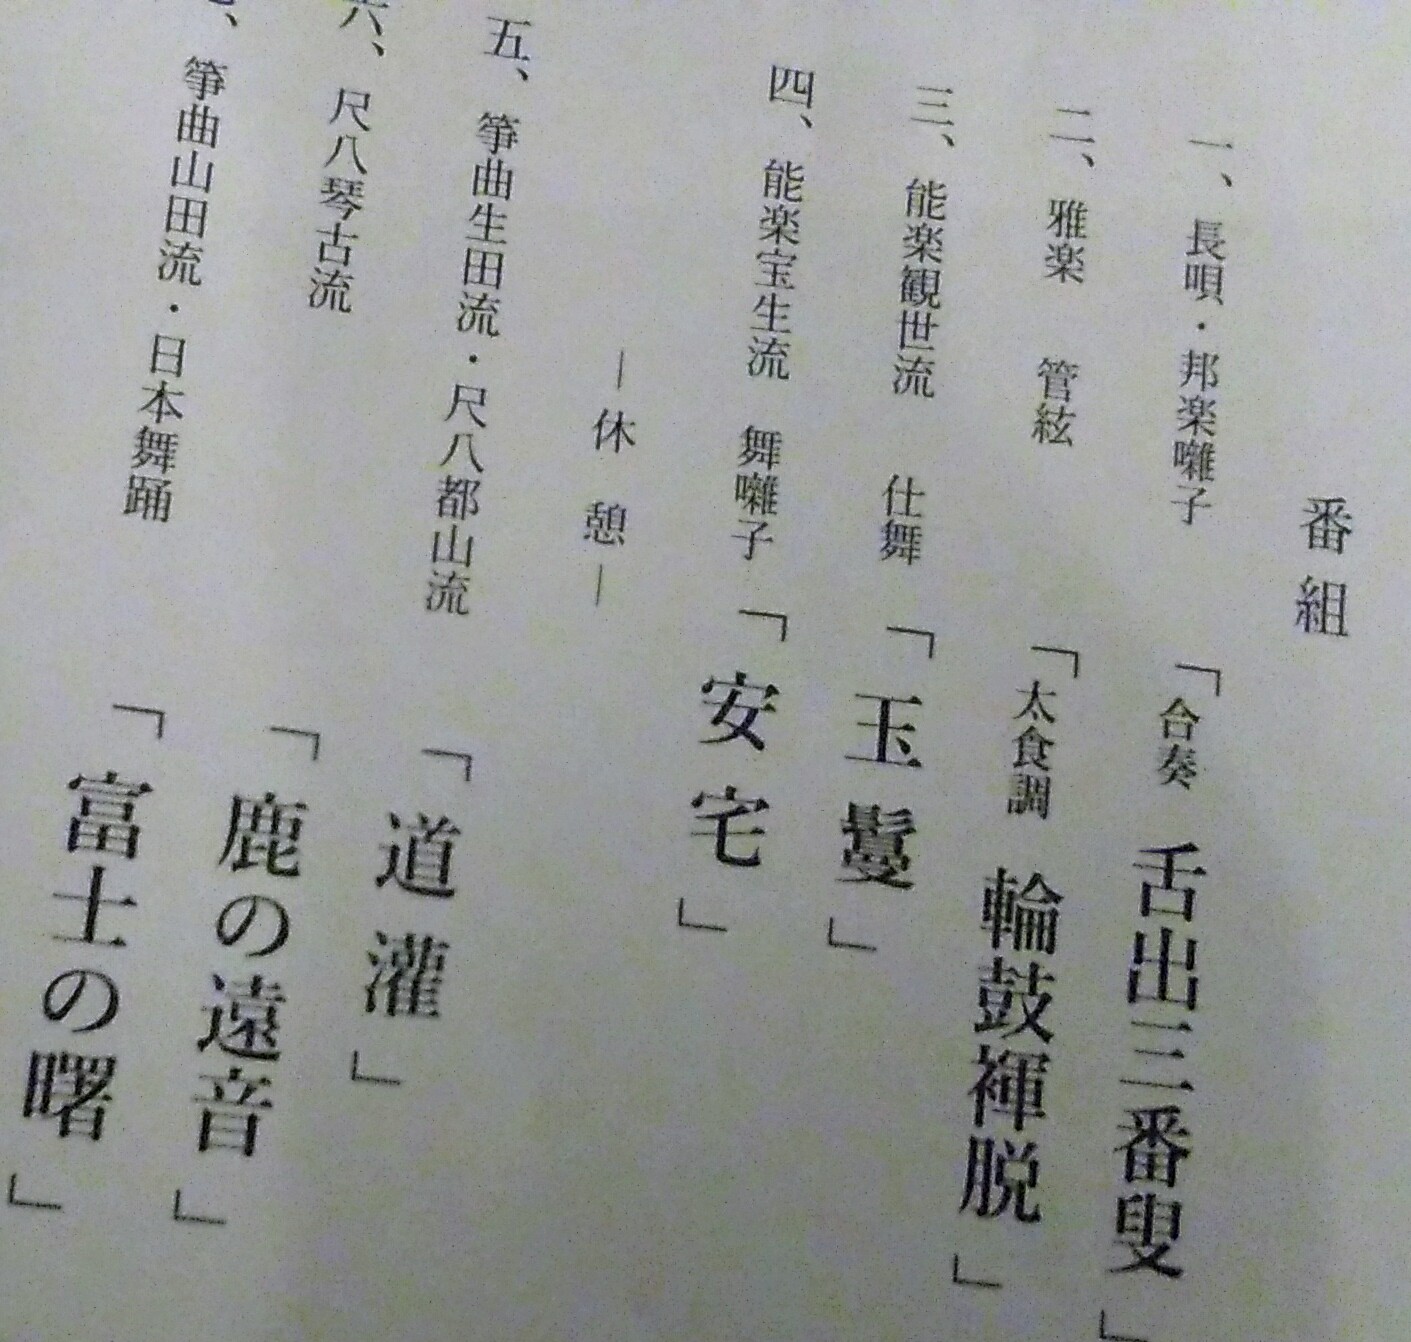 番組
一、長唄・邦楽囃子 「合奏 舌出三番叟」
二、雅楽 管絃 「太食調 輪鼓褌脱」
三、能楽観世流 仕舞 「玉鬘」
四、能楽宝生流 舞囃子 「安宅」
―休憩―
五、箏曲生田流・尺八都山流 「道灌」
六、尺八琴古流 「鹿の遠音」
、箏曲山田流・日本舞踊 「富士の曙」